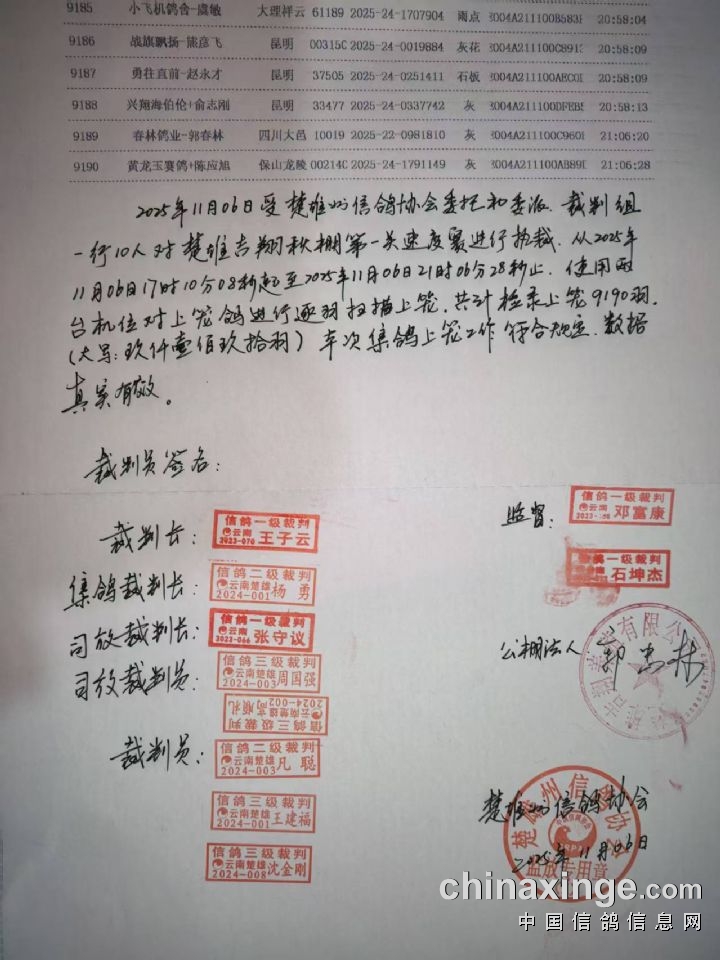 9185 小飞机鸽舍-虞敏 大理祥云 61189 2025-24-1707904 雨点 3004A211100B583F 20:58:04
9186 战旗飘扬-熊彦飞 昆明 00315C 2025-24-0019884 灰花 3004A211100C891? 20:58:09
9187 勇往直前-赵永才 昆明 37505 2025-24-0251411 石板 3004A211100AEC0I 20:58:09
9188 兴翔海伯伦+俞志刚 昆明 33477 2025-24-0337742 灰 3004A211100DFEB5 20:58:13
9189 春林鸽业-郭春林 四川大邑 10019 2025-22-0981810 灰 3004A211100C960I 21:06:20
9190 黄龙玉赛鸽+陈应旭 保山龙陵 00214C 2025-24-1791149 灰 3004A211100AB89D 21:06:28
2025年11月06日受楚雄州信鸽协会委托和委派.裁判组
一行10人对楚雄吉翔秋棚第一关速度赛进行执裁.从2025年
11月06日17时10分08秒起至2025年11月06日21时06分28秒止.使用两
台机位对上笼鸽进行逐羽扫描上笼.共计检录上笼9190羽.
(大写:玖仟壹佰玖拾羽)本次集鸽上笼工作符合规定.数据
真实有效。
裁判员签名:
裁判长: 信鸽一级裁判 云南 2023-070 王子云
监督: 信鸽一级裁判 云南 邓富康
信鸽一级裁判 石坤杰
集鸽裁判长: 信鸽二级裁判 云南楚雄 2024-001 杨勇
司放裁判长: 信鸽一级裁判 云南 2023-066 张守议
公棚法人: 郭忠林
有限公
司放裁判员: 信鸽三级裁判 云南楚雄 2024-003 周国强
信鸽三级裁判 云南楚雄 2024-002 高顺礼
裁判员: 信鸽二级裁判 云南楚雄 2024-003 凡聪
信鸽三级裁判 云南楚雄 2024-001 王建福
信鸽三级裁判 云南楚雄 2024-008 沈金刚
楚雄州信鸽协会
2025年11月06日
楚雄州信鸽协会
监放专用章
chinaxinge.com
中国信鸽信息网